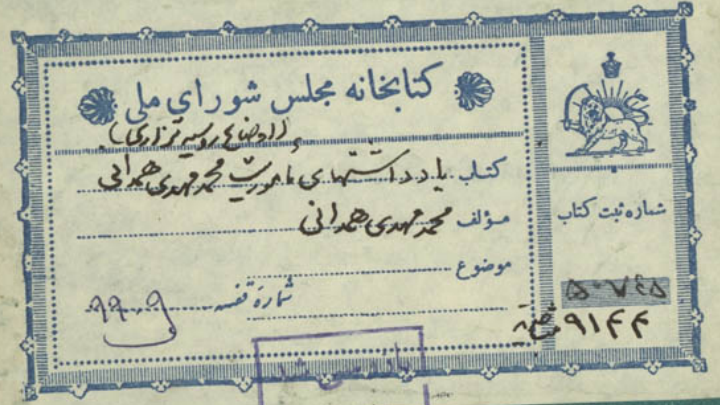 کتابخانه مجلس شورای ملی
(اوضاع روسیه تزاری)
کتاب یادداشتهای مأموریت محمد مهدی همدانی
مؤلف محمد مهدی همدانی
موضوع
شماره قفسه
شماره ثبت کتاب
۵۰۷۴۵
۹۱۴۴
بازرسی شد